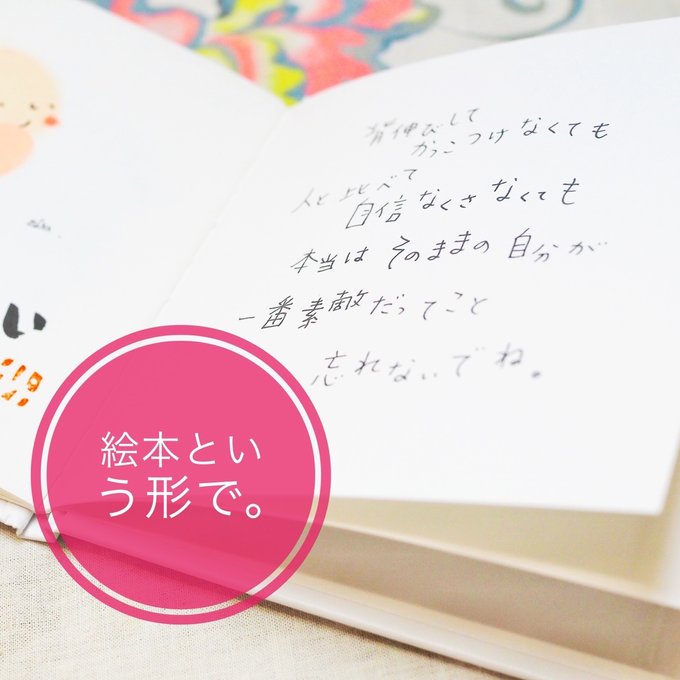 背伸びして
かっこつけなくても
人と比べて
自信なくさなくても
本当は そのままの自分が
一番素敵だってこと
忘れないでね。
い
絵本とい
う形で。